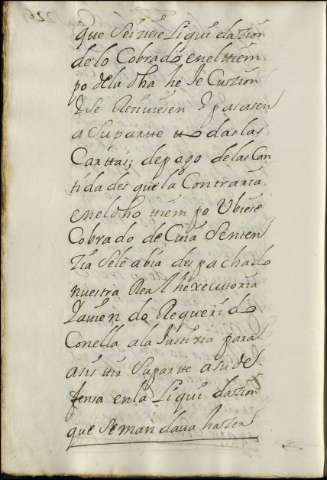 que se izıere Liquidazion
de lo Cobrado en el tiem
po de la dha he se Cuzion
y se Retuviesen y pasasen
a Su parte todas las
Cartas de pago de las Can
tidades que la Contraria
en el dho tiempo Ubiere
Cobrado de Cuia Senten
zia se le abia despachado
nuestra Real hexecutoria
Y aviendo Requerido
Con ella a la Justizia para
asistir Su parte a su de
fensa en la Liquidazion
que se mandava hazer